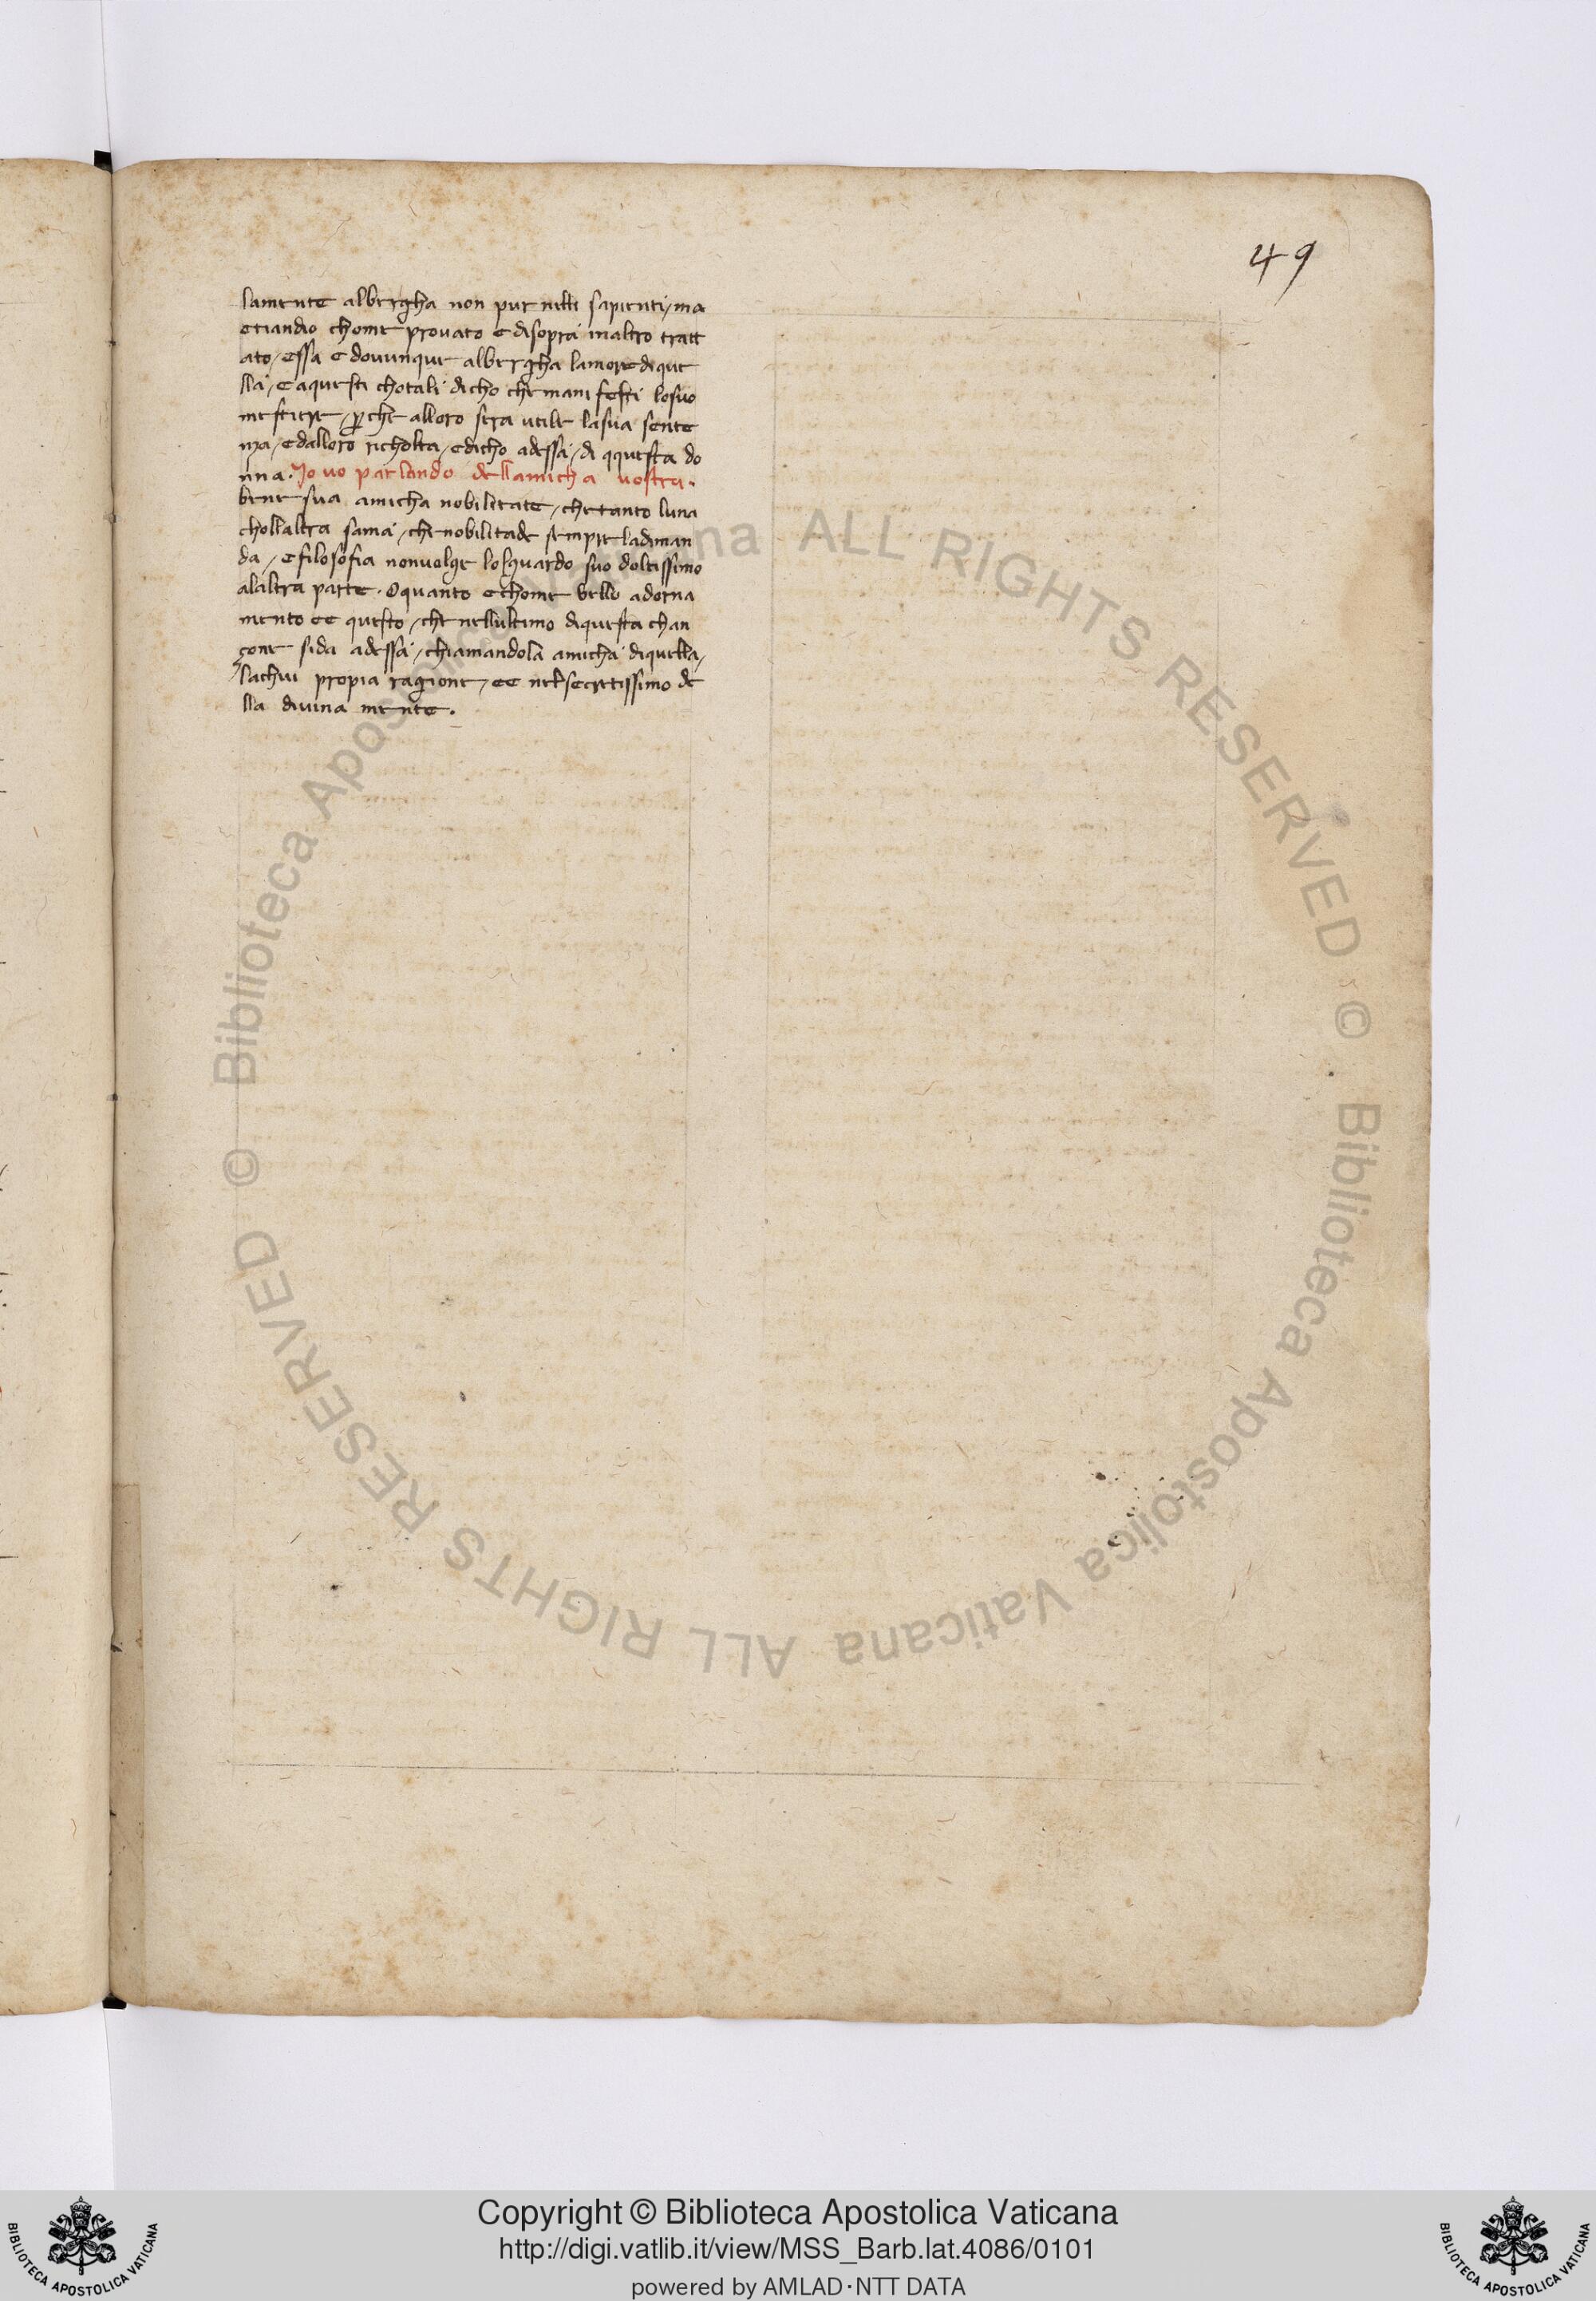 49
lamente albergha non pur nelli sapienti / ma
etiandio chome provato e disopra inaltro tratt
ato / essa e dovunque albergha lamore dique
lla / e aquesti chotali dicho che manifesti losuo
mestiere / ꝑche alloro sera utile lasua sente
nza / e dalloro richolta / edicho adessa / di qquesta do
nna . Io vo parlando dellamicha vostra .
bene sua amicha nobilitate / che tanto luna
chollaltra sama / che nobilitade sempre ladiman
da / e filosofia nonvolge losguardo suo dolcissimo
alaltra parte . O quanto e chome bello adorna
mento ee questo / che nellultimo diquesta chan
çone sida adessa / chiamandola amicha diquella /
lachui propia ragione / ee nel secretissimo de
lla divina mente .
© Biblioteca Apostolica Vaticana ALL RIGHTS RESERVED
© Biblioteca Apostolica Vaticana ALL RIGHTS RESERVED
Copyright © Biblioteca Apostolica Vaticana
http://digi.vatlib.it/view/MSS_Barb.lat.4086/0101
powered by AMLAD·NTT DATA
BIBLIOTECA APOSTOLICA VATICANA
BIBLIOTECA APOSTOLICA VATICANA